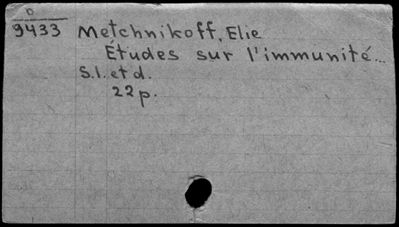 D.
9433 Metchnikoff, Elie
Etudes sur l'immunité...
S.l. et d.
22 p.